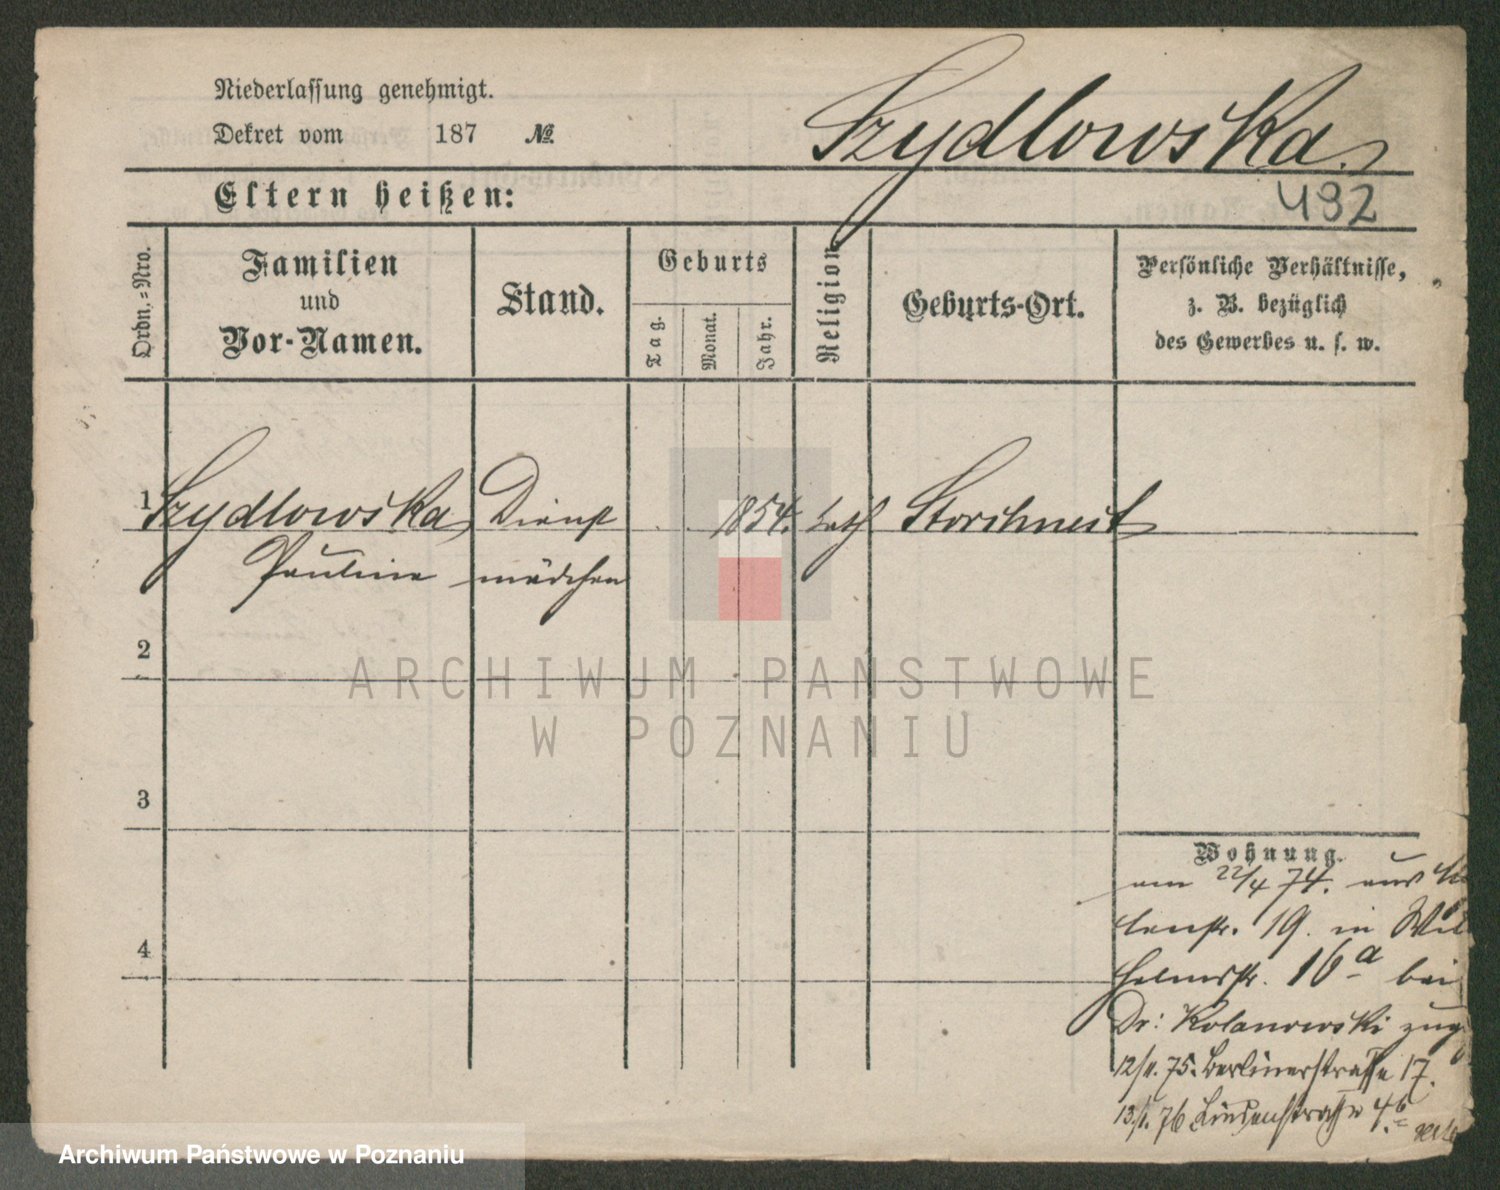 Niederlassung genehmigt.
Dekret vom 187 №.
Szydlowska.
Eltern heißen:
492
Ordn.=Nro.
Familien
und
Vor-Namen.
Stand.
Geburts
Tag.
Monat.
Jahr.
Religion
Geburts-Ort.
Persönliche Verhältnisse,
z. B. bezüglich
des Gewerbes u. s. w.
1 Szydlowska Dienst 1854. kath Storchnest
Pauline mädchen
2
ARCHIWUM PAŃSTWOWE
W POZNANIU
3
Wohnung.
am 22/4 74. aus
19. in Wil
helmstr. 16a bei
4
Dr: Kolanowski zug
12/11. 75. Berlinerstraße 17.
13/1. 76 Lindenstraße 4.
Archiwum Państwowe w Poznaniu